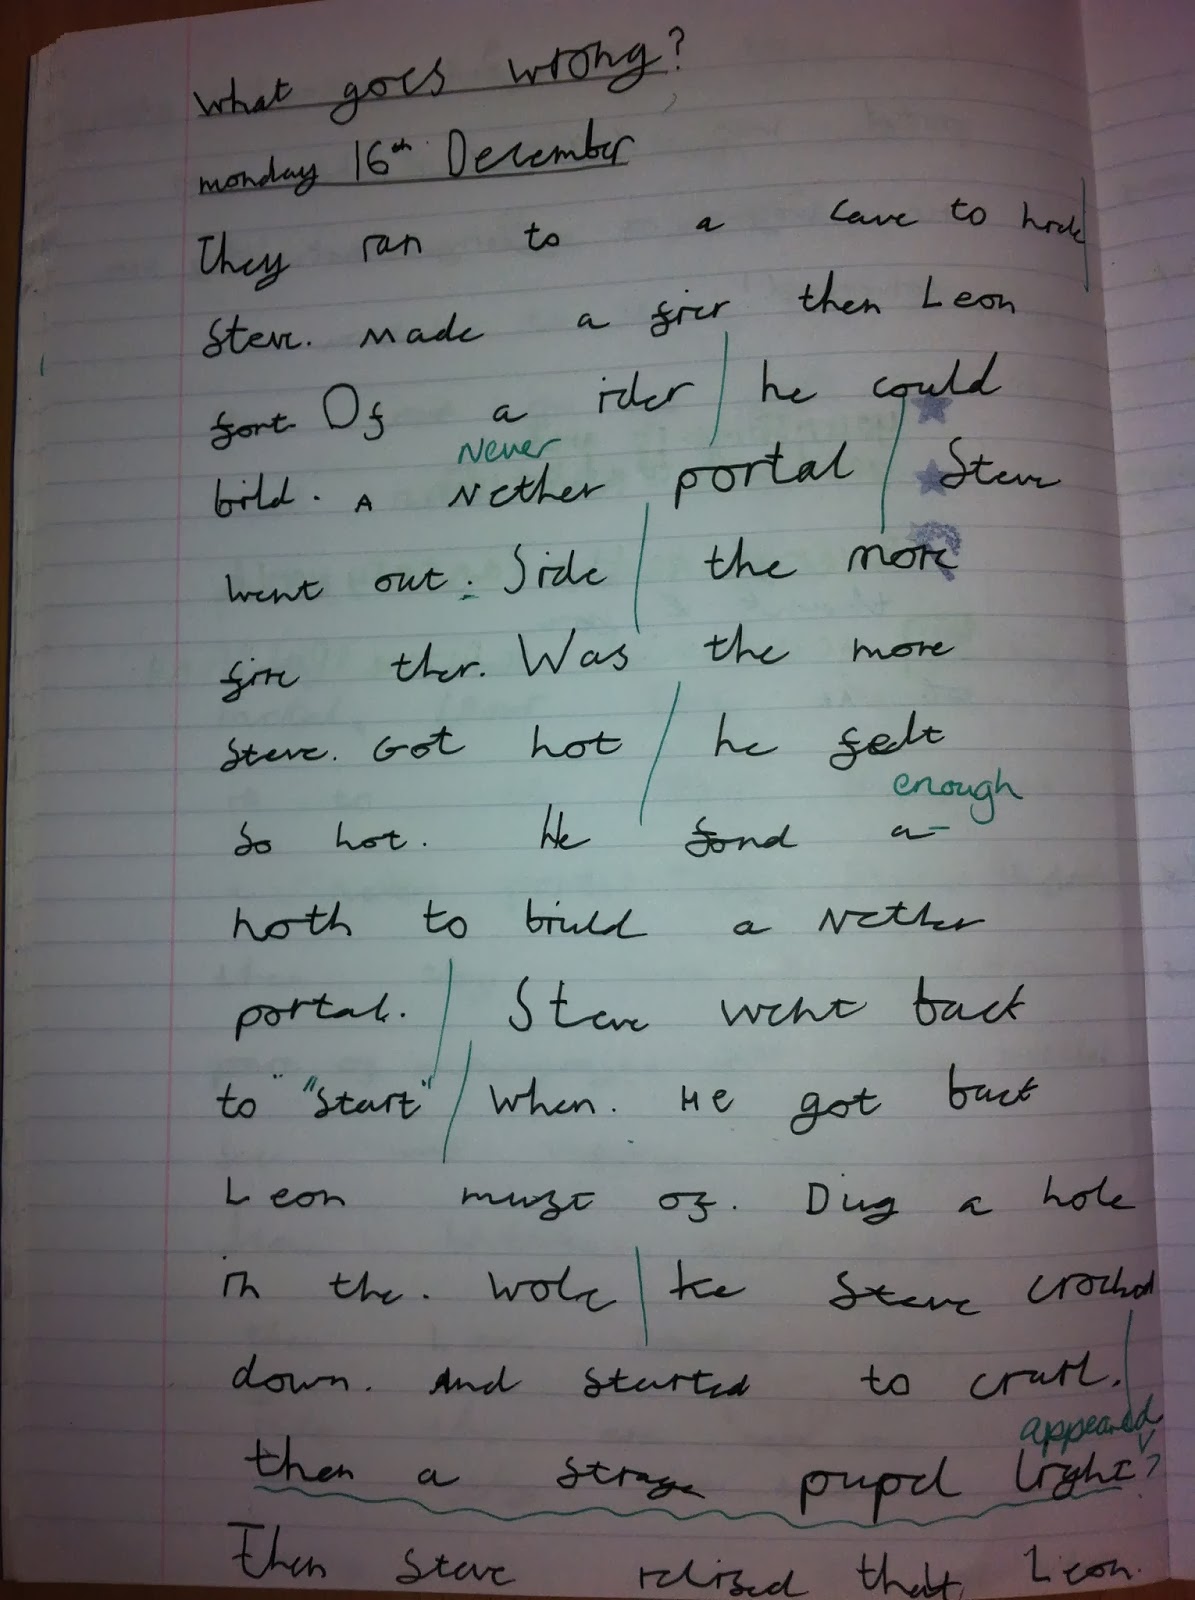 What goes wrong?
monday 16th December
They ran to a cave to hide
Steve. made a fier then Leon
fort Of a ider he could
bild. A Nether portal Steve
Never
went out. Side the more
fire ther. Was the more
Steve. Got hot he felt
so hot. He fond a
enough
noth to briuld a Nether
portal. Steve went back
to "start" when. He got back
Leon must of. Dug a hole
in the. wole he Steve croched
down. And started to crarl.
then a strage pupel light?
appeared
Then Steve relised that Leon.